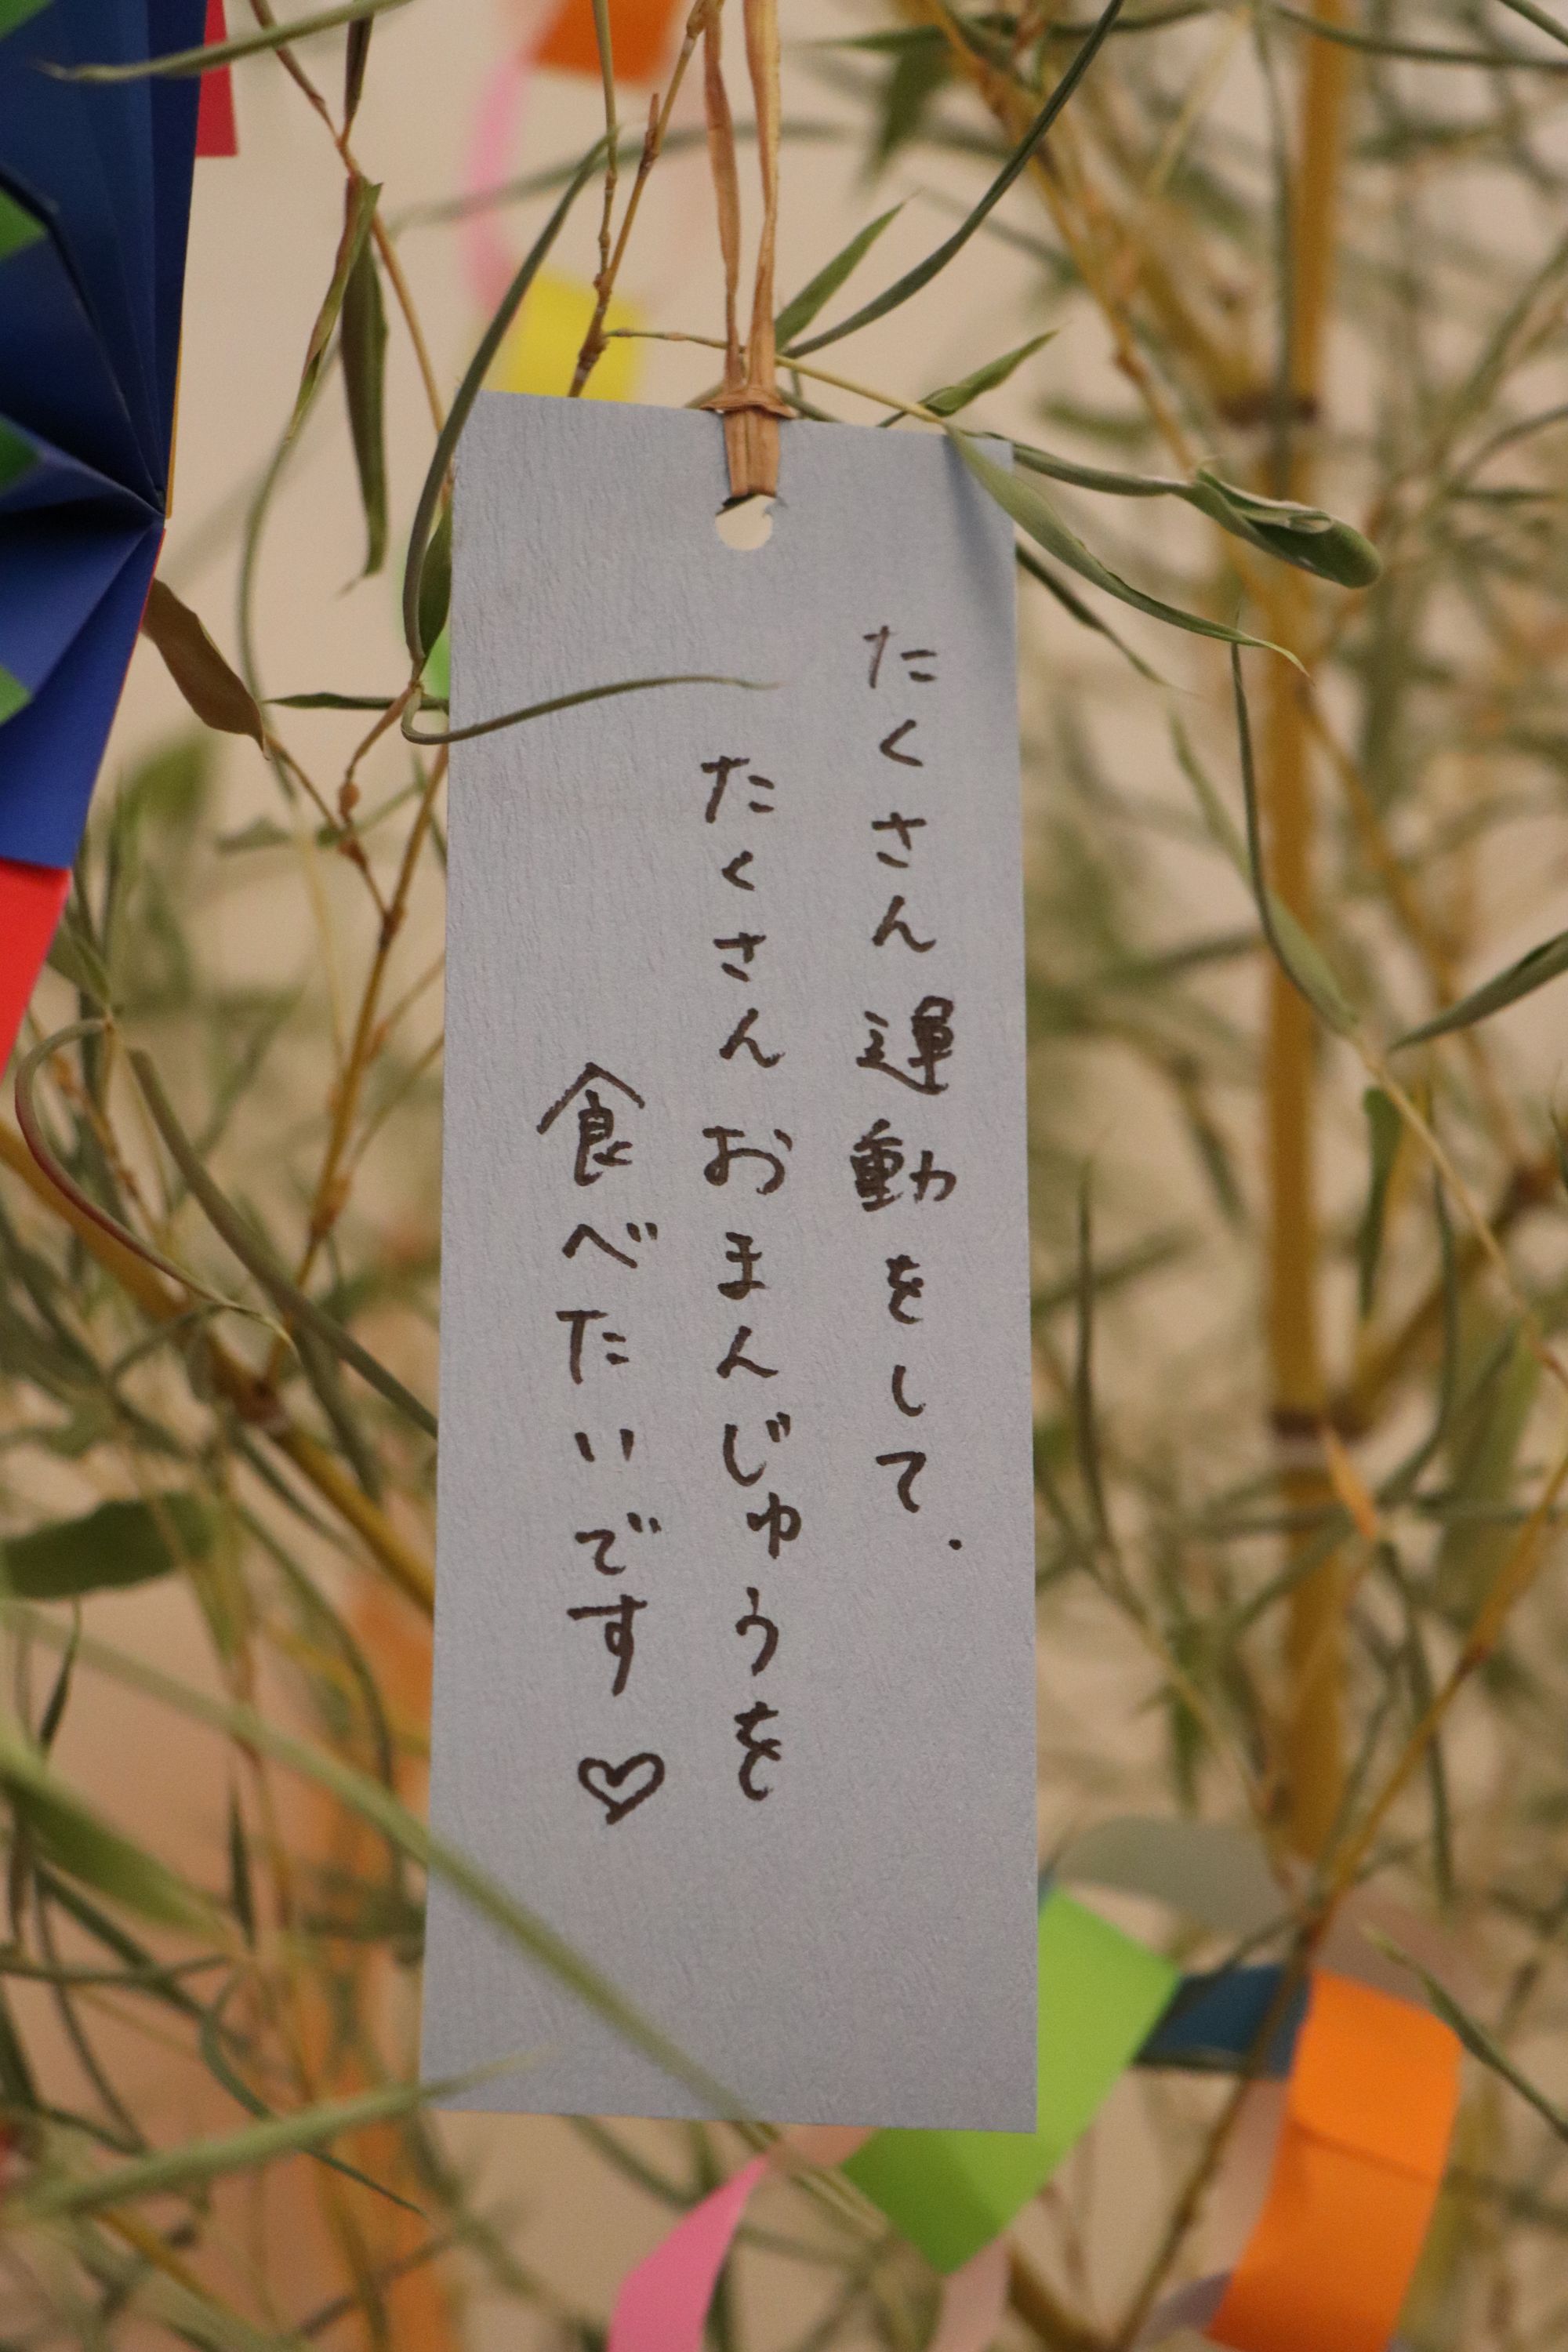 たくさん運動をして.
たくさんおまんじゅうを
食べたいです♡